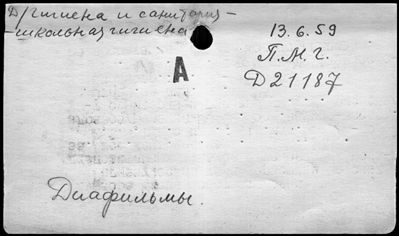 Д/гигиена и санитария-
-школьная гигиена
13.6.59
А
П.М.г.
Д21187
Диафильмы.